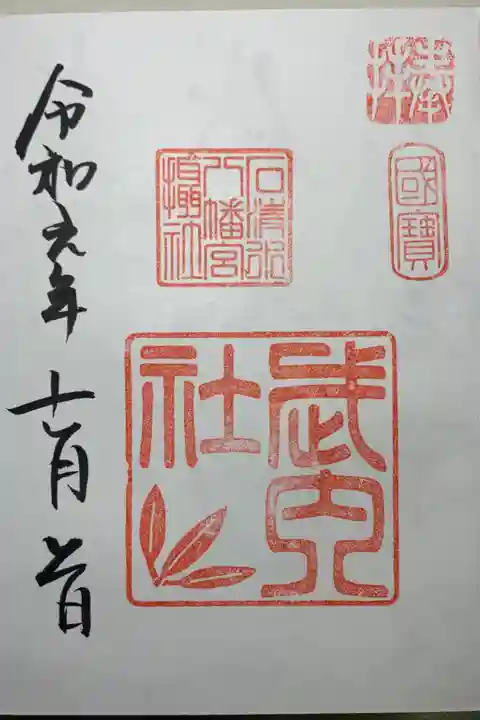 奉拝
國寶
石清水
八幡宮
攝社
武内
社
令和元年 十 月 日